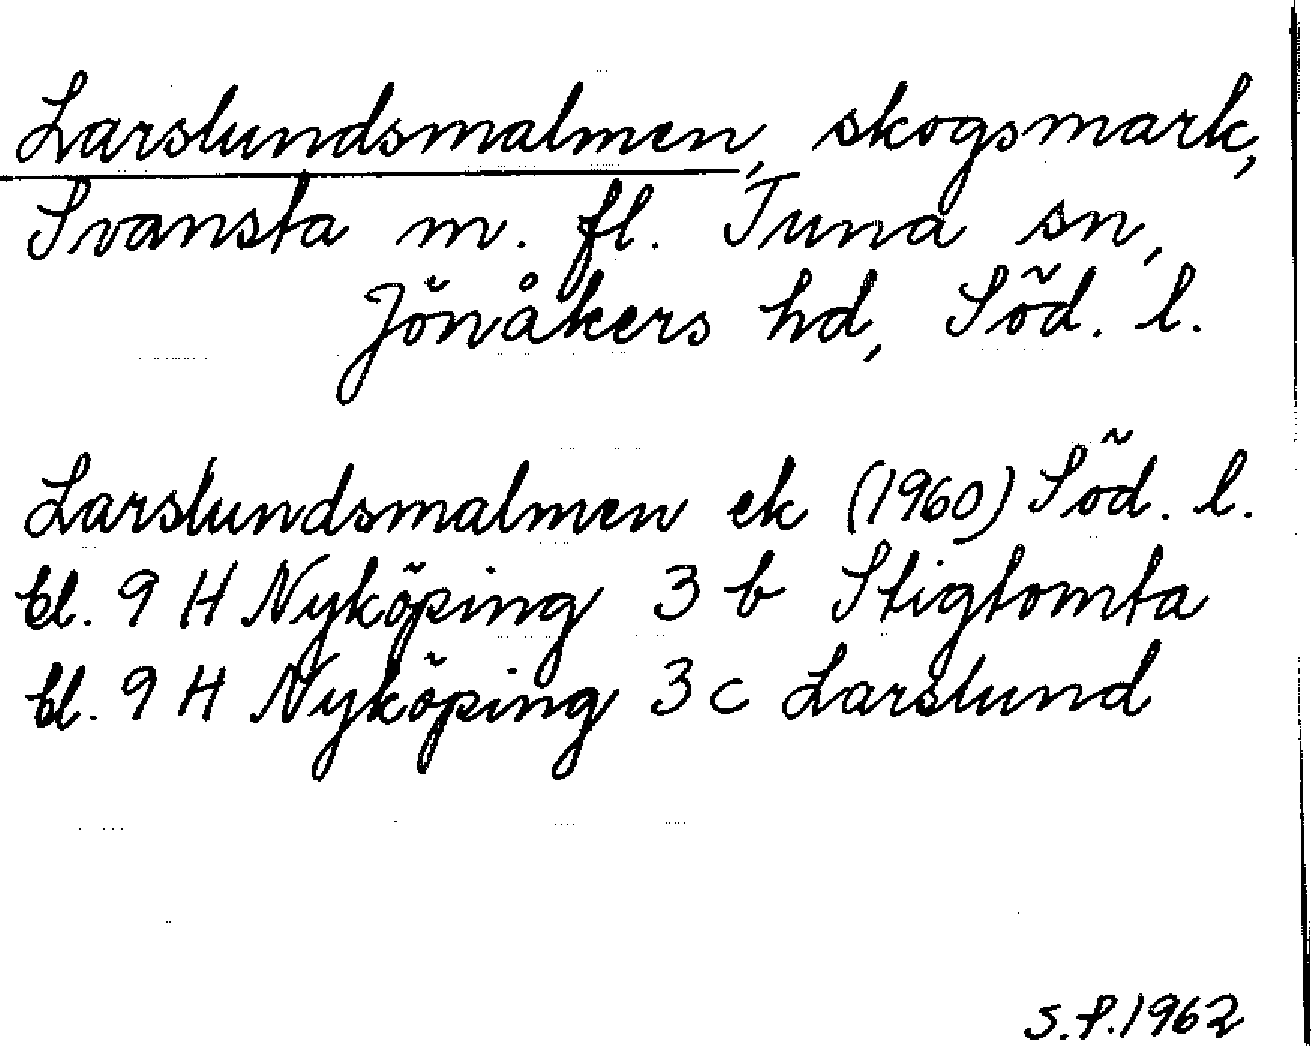 Larslundsmalmen, skogsmark,
Svansta m. fl. Tuna sn,
Jönåkers hd, Söd. l.
Larslundsmalmen ek (1960) Söd. l.
bl. 9 H Nyköping 3 b Stigtomta
bl. 9 H Nyköping 3 c Larslund
S.P. 1962